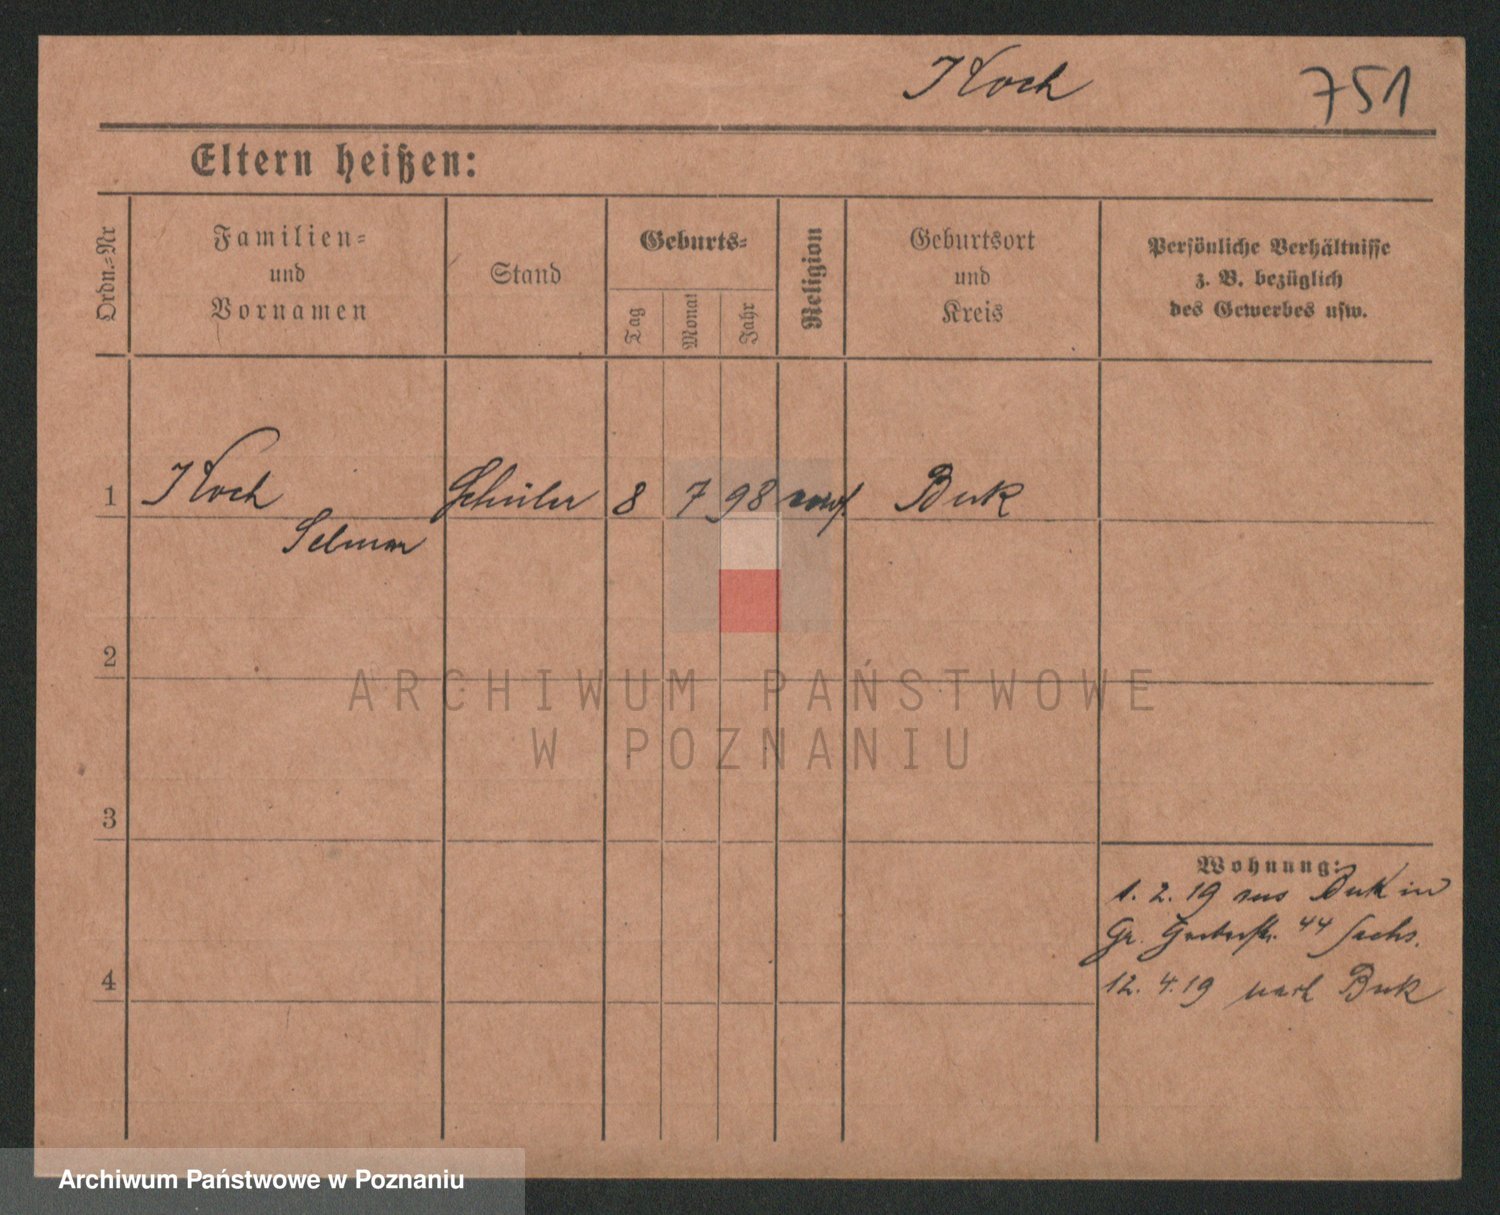 Koch 751
Eltern heißen:
Ordn.=Nr
Familien=
und
Vornamen
Stand
Geburts=
Tag
Monat
Jahr
Religion
Geburtsort
und
Kreis
Persönliche Verhältnisse
z. B. bezüglich
des Gewerbes usw.
1 Koch Schüler 8 7 98 Buk
Selmar
2
ARCHIWUM PAŃSTWOWE
W POZNANIU
3
Wohnung:
1. 2. 19 aus Buk in
Gr. Gerberstr. 44 Sachs.
4
12. 4. 19 nach Buk
Archiwum Państwowe w Poznaniu